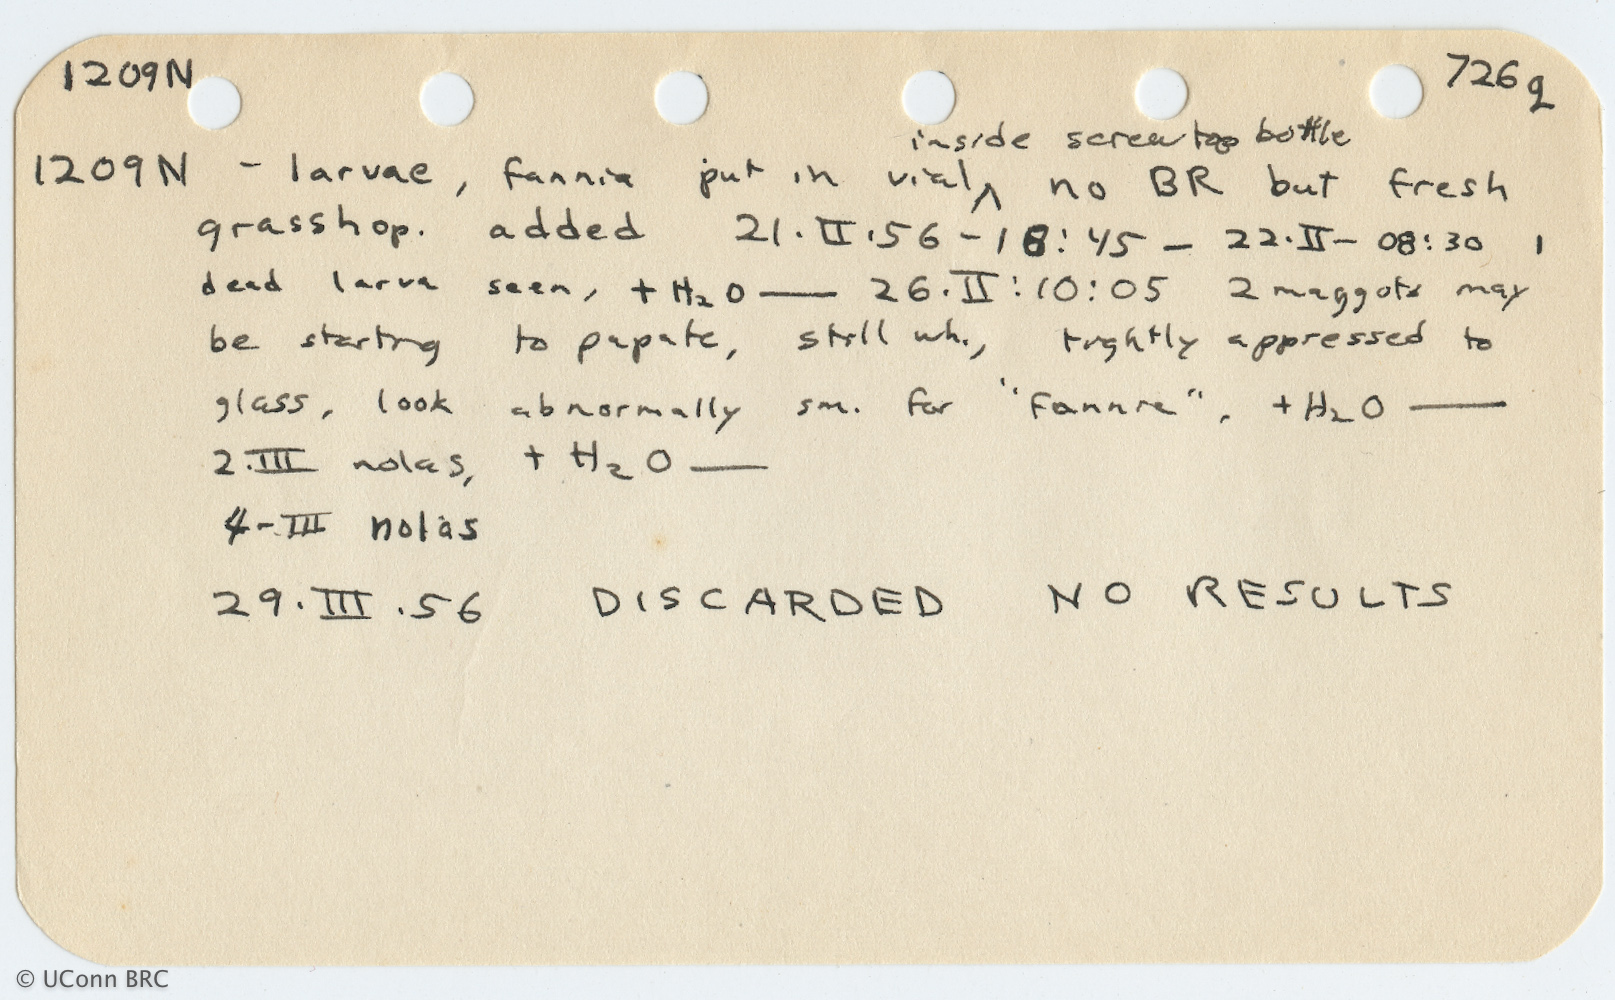 1209N 726q
inside screw top bottle
1209N - larvae, fannia put in vial ^ no BR but fresh
grasshop. added 21.II.56 - 18:45 - 22.II - 08:30 1
dead larva seen, + H2O — 26.II:10:05 2 maggots may
be starting to pupate, still wh., tightly appressed to
glass, look abnormally sm. for "fannia". + H2O —
2.III nolas, + H2O —
4-III nolas
29.III.56 DISCARDED NO RESULTS
© UConn BRC